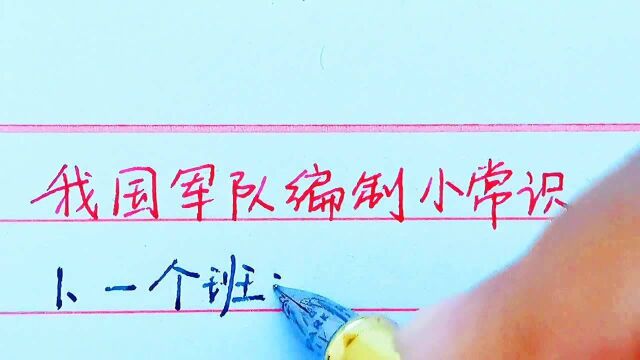 我国军队编制小常识
1、一个班: